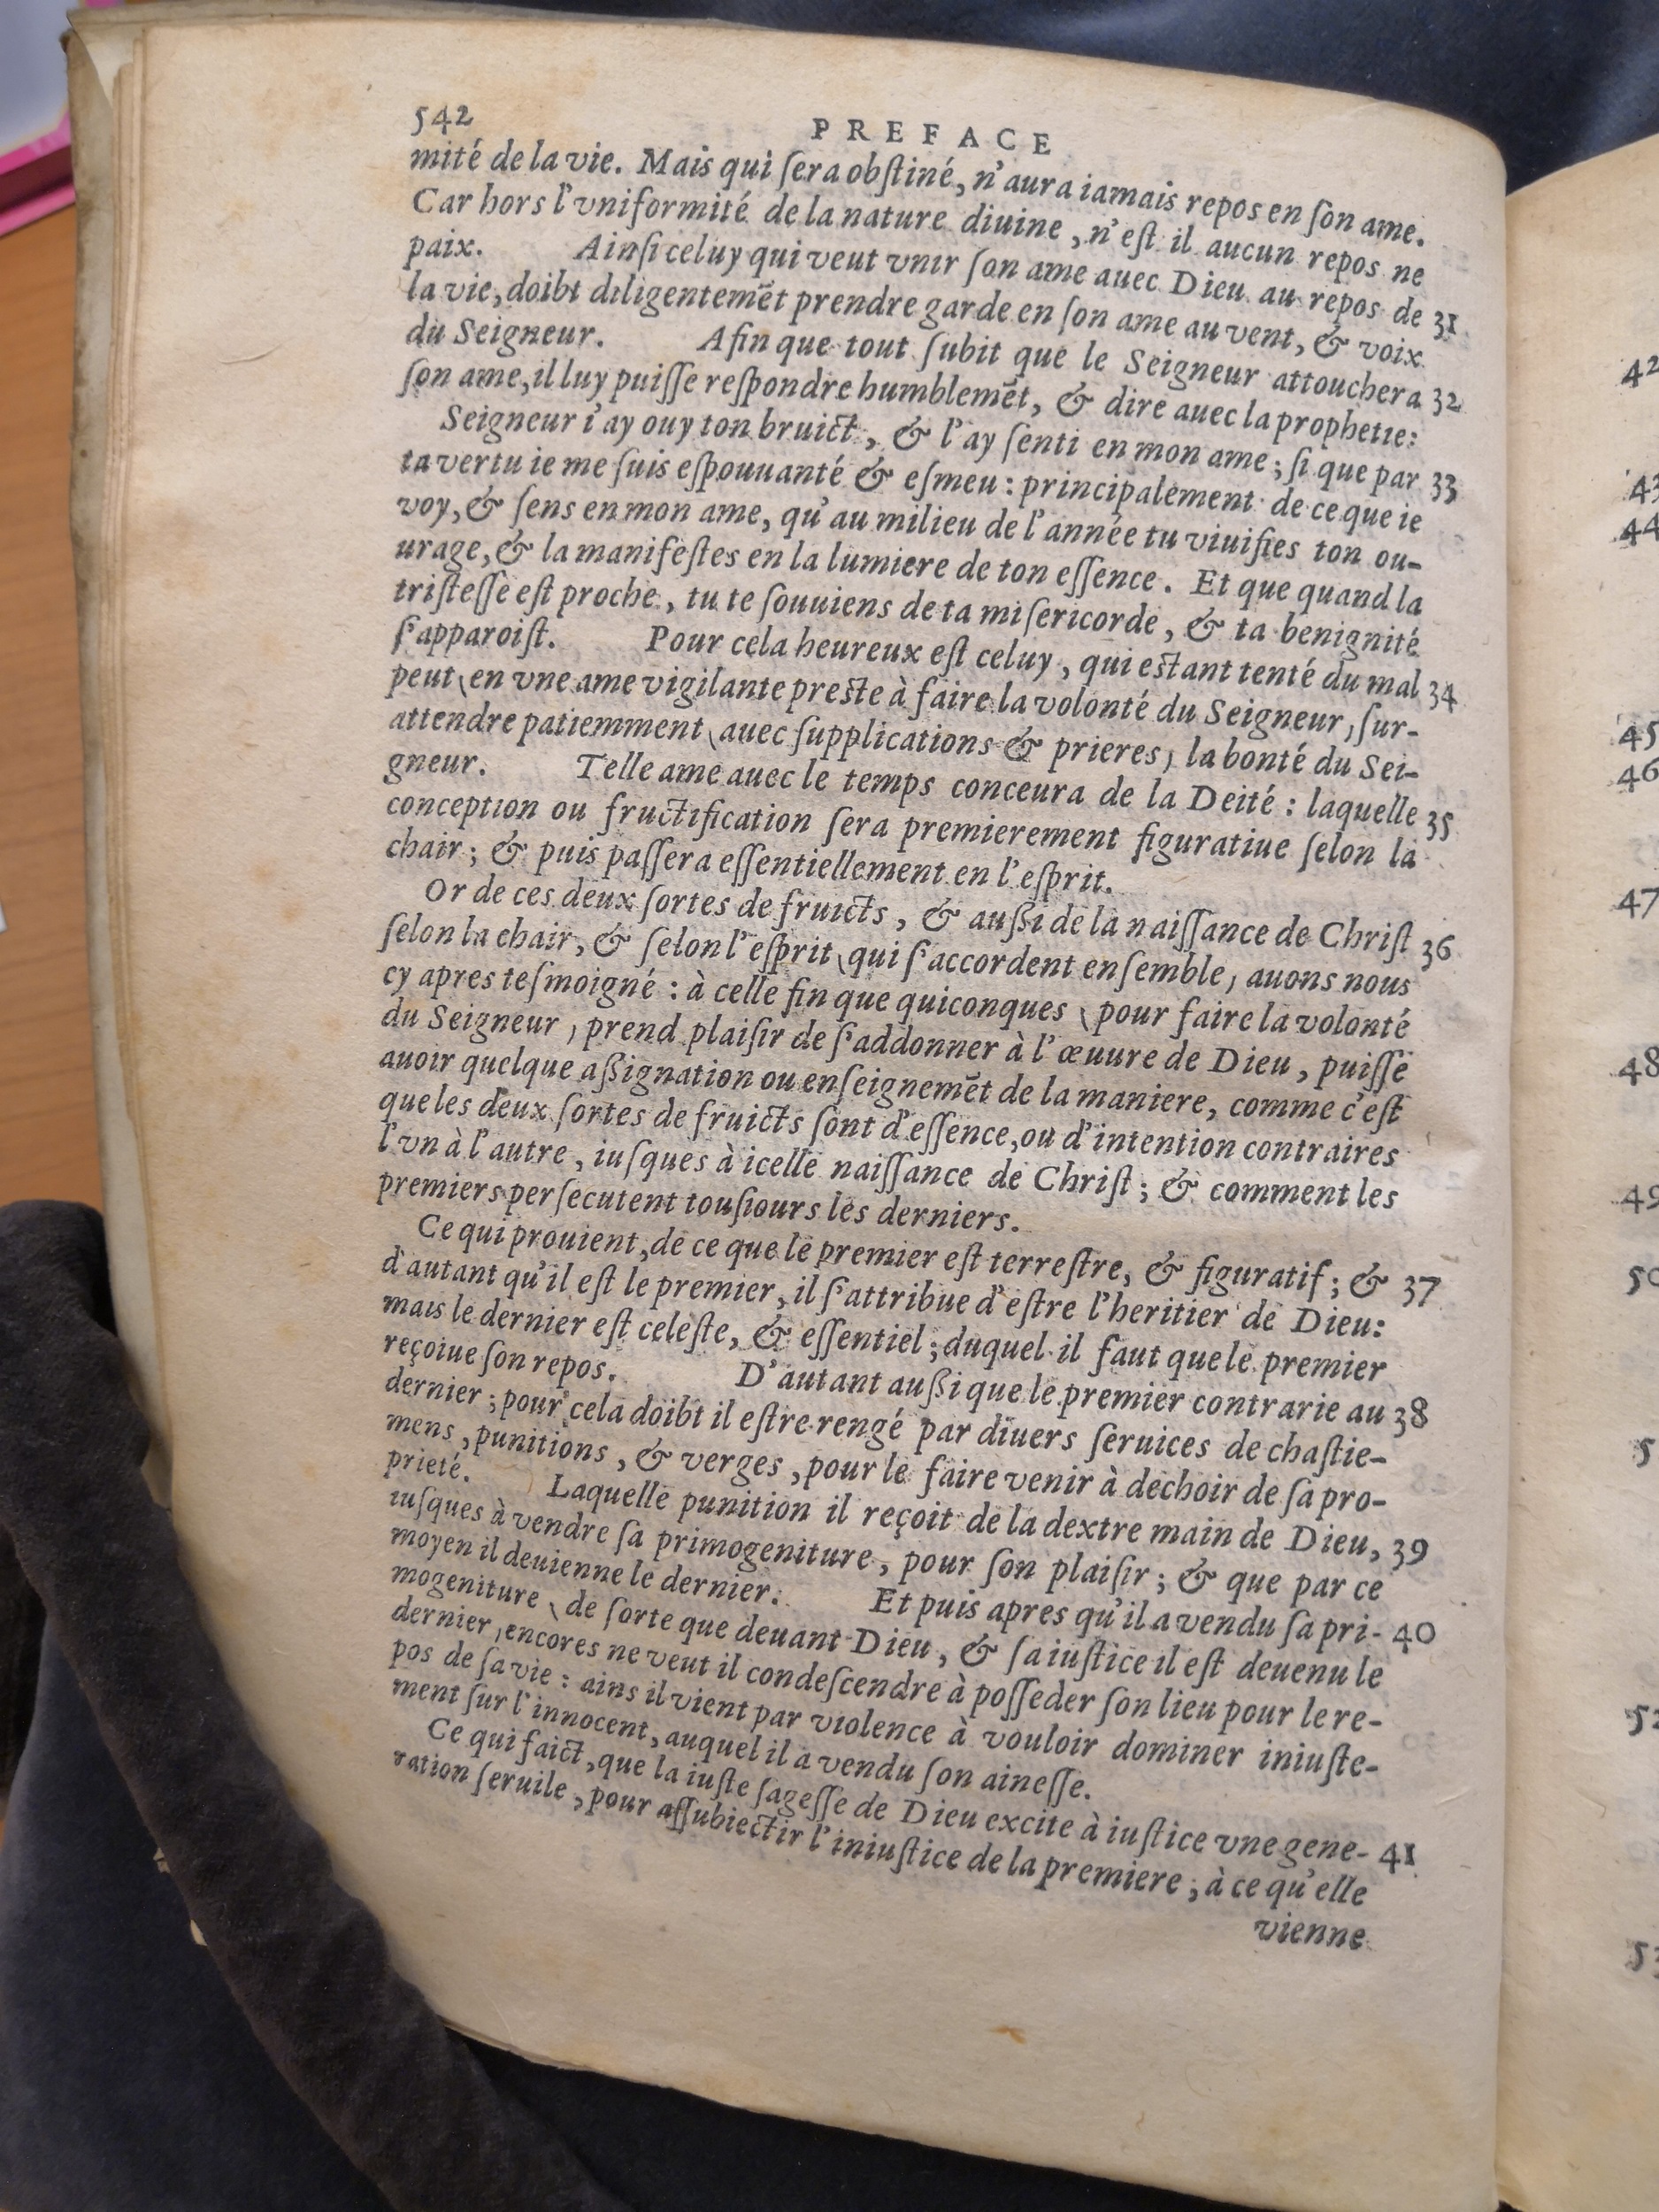 542
PREFACE
mité de la vie. Mais qui ſera obſtiné, n'aura iamais repos en ſon ame.
Car hors l'vniformité de la nature diuine, n'eſt il aucun repos ne
paix. Ainſi celuy qui veut vnir ſon ame auec Dieu au repos de 31
la vie, doibt diligentemẽt prendre garde en ſon ame au vent, & voix
du Seigneur. Afin que tout ſubit que le Seigneur attouchera 32
ſon ame, il luy puiſſe reſpondre humblemẽt, & dire auec la prophetie:
Seigneur i'ay ouy ton bruict, & l'ay ſenti en mon ame; ſi que par 33
ta vertu ie me ſuis eſpouuanté & eſmeu: principalement de ce que ie
voy, & ſens en mon ame, qu'au milieu de l'année tu viuifies ton ou-
urage, & la manifeſtes en la lumiere de ton eſſence. Et que quand la
triſteſſe eſt proche, tu te ſouuiens de ta miſericorde, & ta benignité
ſ'apparoiſt. Pour cela heureux eſt celuy, qui estant tenté du mal 34
peut\en vne ame vigilante preste à faire la volonté du Seigneur, ſur-
attendre patiemment\auec ſupplications & prieres, la bonté du Sei-
gneur. Telle ame auec le temps conceura de la Deité: laquelle 35
conception ou fructification ſera premierement figuratiue ſelon la
chair; & puis paſſera eſſentiellement en l'eſprit.
Or de ces deux ſortes de fruicts, & auſſi de la naiſſance de Chriſt 36
ſelon la chair, & ſelon l'eſprit\qui ſ'accordent enſemble, auons nous
cy apres teſmoigné: à celle fin que quiconques \pour faire la volonté
du Seigneur, prend plaiſir de ſ'addonner à l'œuure de Dieu, puiſſe
auoir quelque aſſignation ou enſeignemẽt de la maniere, comme c'eſt
que les deux ſortes de fruicts ſont d'eſſence, ou d'intention contraires
l'vn à l'autre, iuſques à icelle naiſſance de Chriſt; & comment les
premiers perſecutent touſiours les derniers.
Ce qui prouient, de ce que le premier eſt terreſtre, & figuratif; & 37
d'autant qu'il eſt le premier, il ſ'attribue d'eſtre l'heritier de Dieu:
mais le dernier eſt celeſte, & eſſentiel; duquel il faut que le premier
reçoiue ſon repos. D'autant auſſi que le premier contrarie au 38
dernier; pour cela doibt il eſtre rengé par diuers ſeruices de chaſtie-
mens, punitions, & verges, pour le faire venir à dechoir de ſa pro-
prieté. Laquelle punition il reçoit de la dextre main de Dieu, 39
iuſques à vendre ſa primogeniture, pour ſon plaiſir; & que par ce
moyen il deuienne le dernier. Et puis apres qu'il a vendu ſa pri- 40
mogeniture \de ſorte que deuant Dieu, & ſa iuſtice il eſt deuenu le
dernier, encores ne veut il condeſcendre à poſſeder ſon lieu pour le re-
pos de ſa vie: ains il vient par violence à vouloir dominer iniuſte-
ment ſur l'innocent, auquel il a vendu ſon aineſſe.
Ce qui faict, que la iuſte ſageſſe de Dieu excite à iuſtice vne gene- 41
ration ſeruile, pour aſſubiectir l'iniuſtice de la premiere; à ce qu'elle
vienne
42
43
44
45
46
47
48
49
50
5
52
53